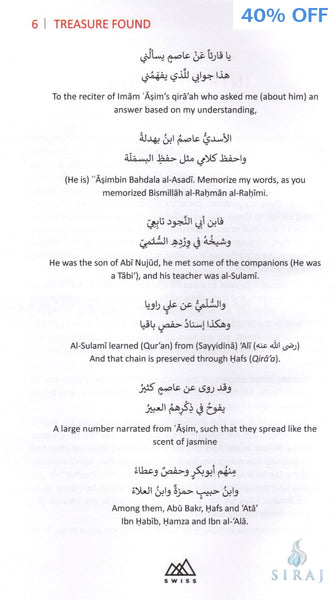 40% OFF
6 | TREASURE FOUND
يا قارئاً عَنْ عاصمٍ يسألُني
هذا جوابي للَّذي يفهَمُني
To the reciter of Imām ʿĀṣim's qirā'ah who asked me (about him) an
answer based on my understanding,
الأسديُّ عاصمُ ابنُ بهدلةُ
واحفظ كلامي مثل حفظِ البسمَلَة
(He is) ʿĀṣimbin Bahdala al-Asadī. Memorize my words, as you
memorized Bismillāh al-Raḥmān al-Raḥīmi.
فابن أبي النَّجود تابِعِيّ
وشيخُهُ في وِرْدِهِ السُّلَمِيّ
He was the son of Abī Nujūd, he met some of the companions (He was
a Tābi'), and his teacher was al-Sulamī.
والسُّلَمِيُّ عن عليٍ راويا
وهكذا إسنادُ حفصٍ باقيا
Al-Sulamī learned (Qur'an) from (Sayyidinā) ʿAlī (رضي الله عنه)
And that chain is preserved through Ḥafs (Qirā'a).
وقد روى عن عاصمٍ كثيرُ
يفوحُ في ذِكْرِهمُ العبيرُ
A large number narrated from ʿĀṣim, such that they spread like the
scent of jasmine
مِنهُم أبوبكرٍ وحفصٌ وعطاءُ
وابنُ حبيبٍ حمزةُ وابنُ العلاءُ
Among them, Abū Bakr, Ḥafs and ʿAtā'
Ibn Ḥabīb, Ḥamza and Ibn al-ʿAlā.
SWISS
SIRAJ